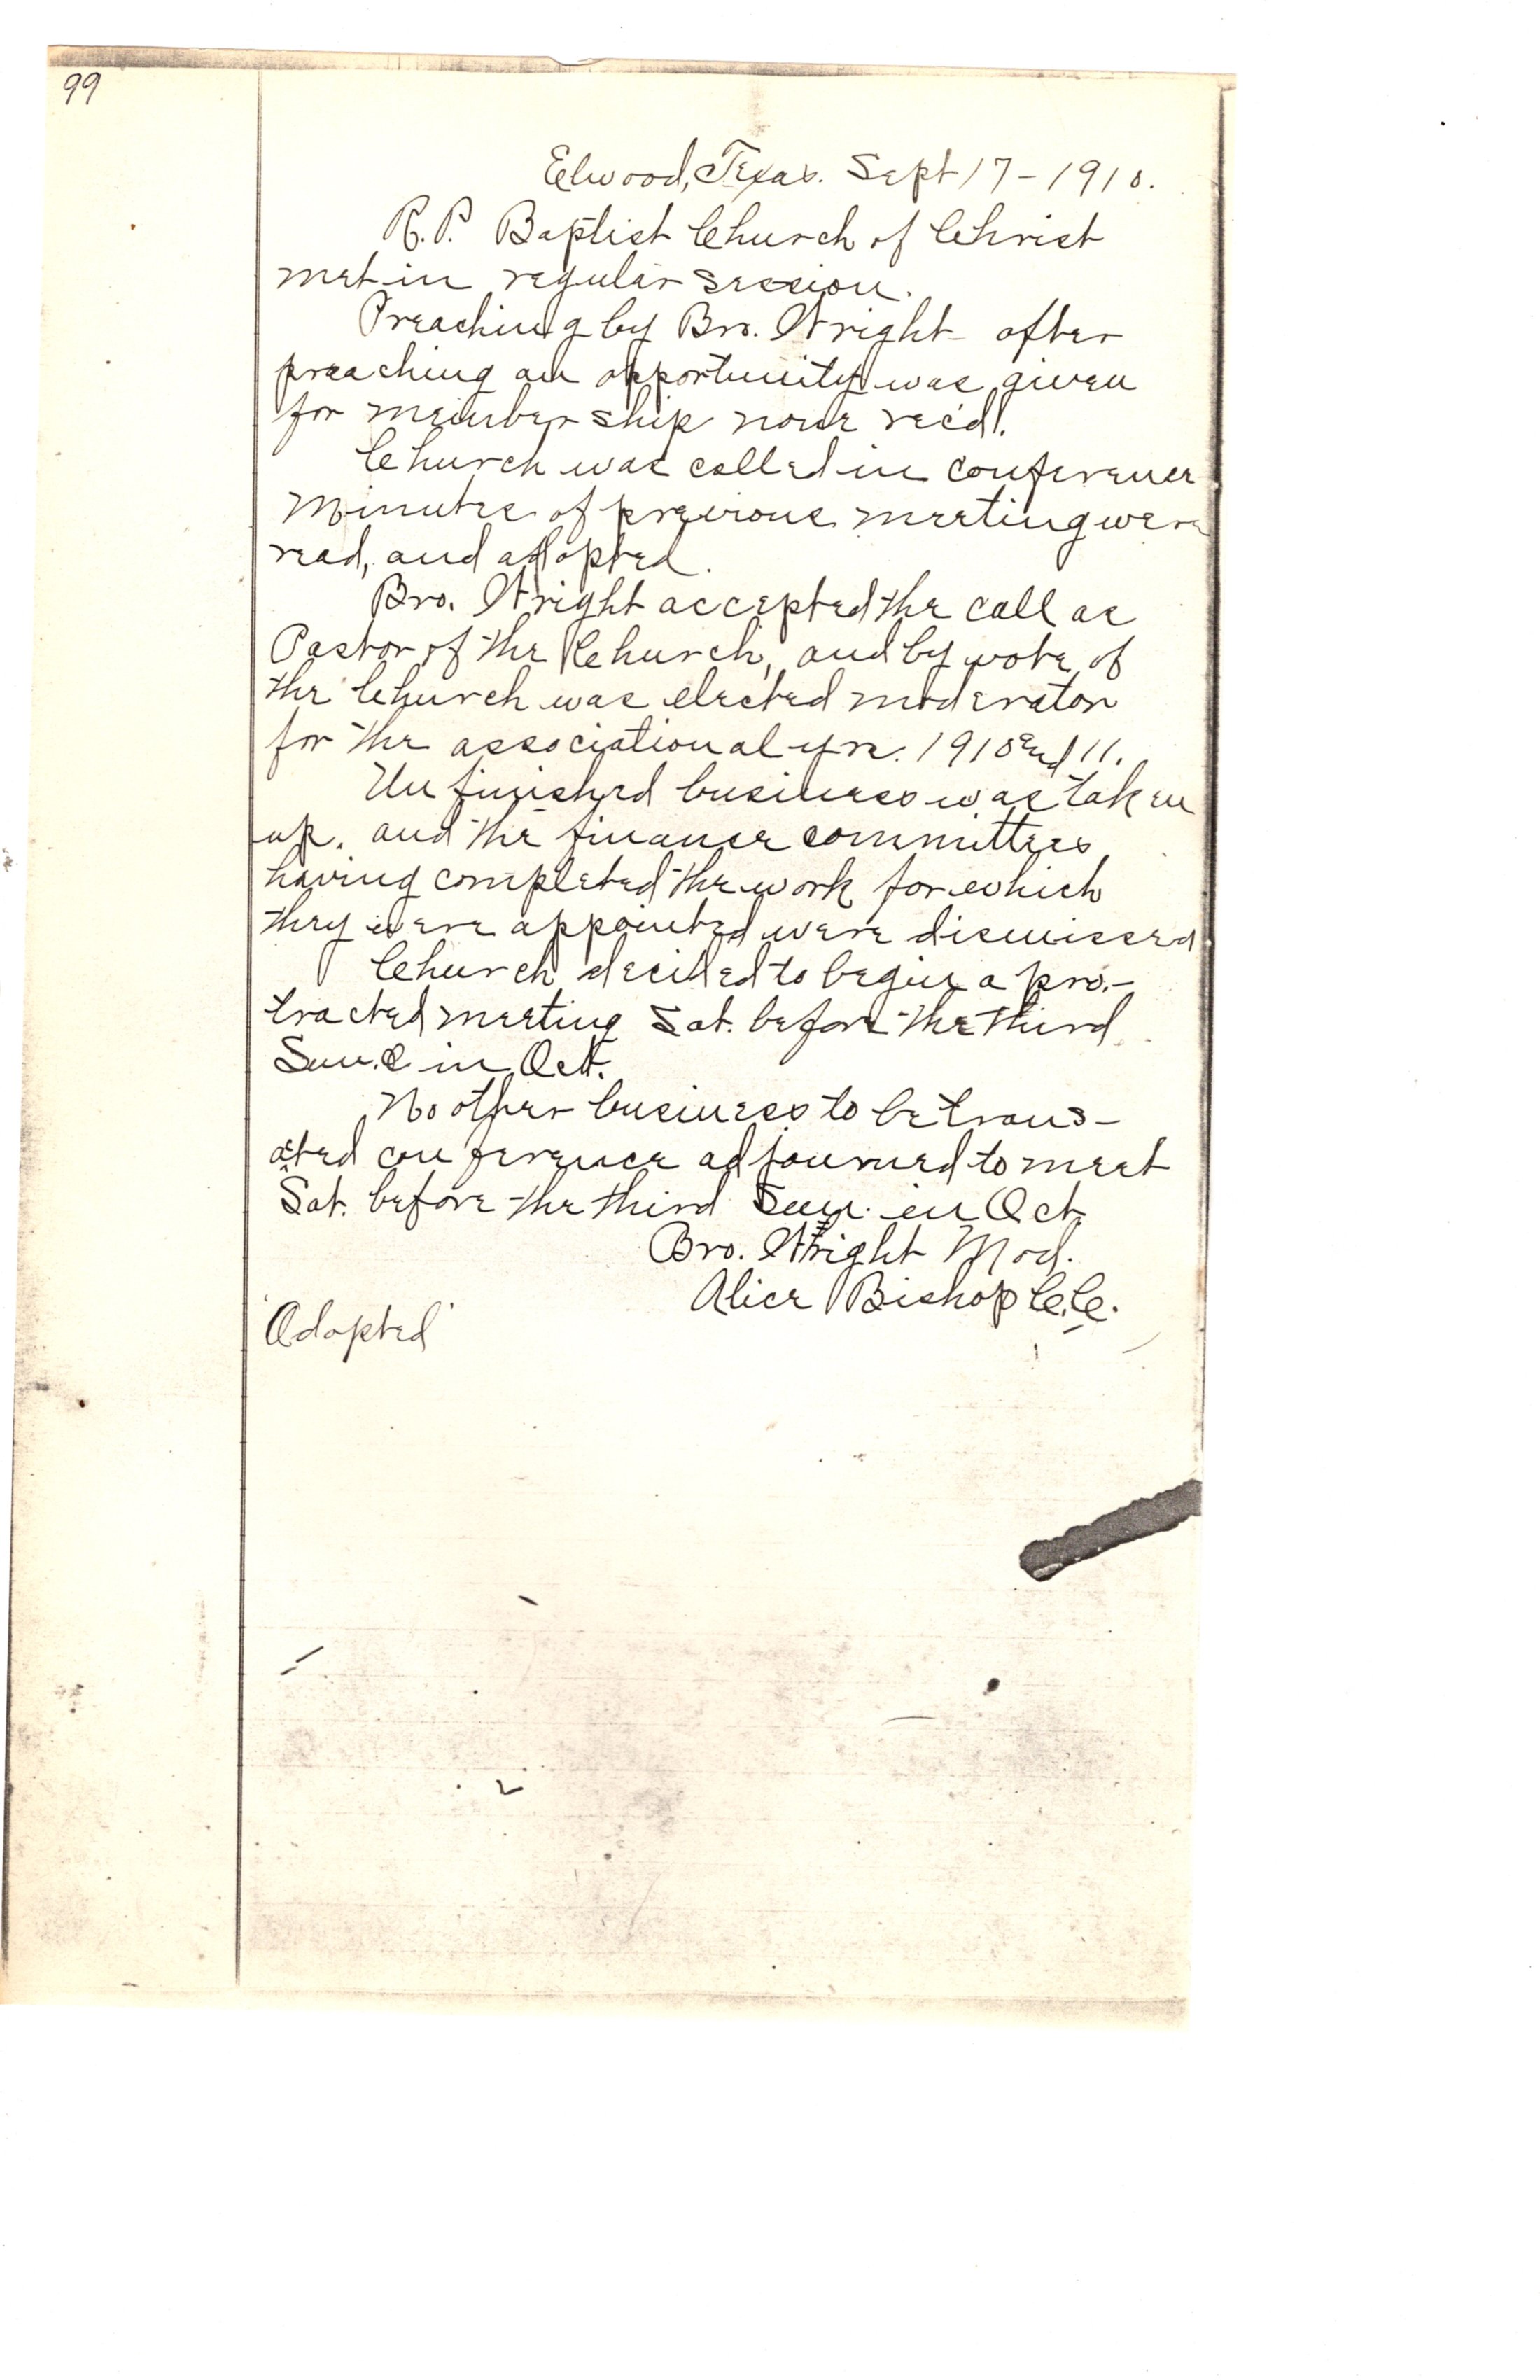 99
Elwood, Texas. Sept 17 - 1910.
R. P. Baptist Church of Christ
met in regular session.
Preaching by Bro. Wright after
preaching an opportunity was given
for membership none rec'd.
Church was called in conference
Minutes of previous meeting were
read, and adopted.
Bro. Wright accepted the call as
Pastor of the Church, and by vote of
the Church was elected moderator
for the associational yrs. 1910 and 11.
Unfinished business was taken
up. and the finance committees
having completed the work for which
they were appointed were dismissed
Church decided to begin a pro-
tracted meeting Sat. before the third
Sun. in Oct.
No other business to be trans-
acted conference adjourned to meet
Sat. before the third Sun. in Oct.
Bro. Wright Mod.
Alice Bishop C.C.
"Adopted"